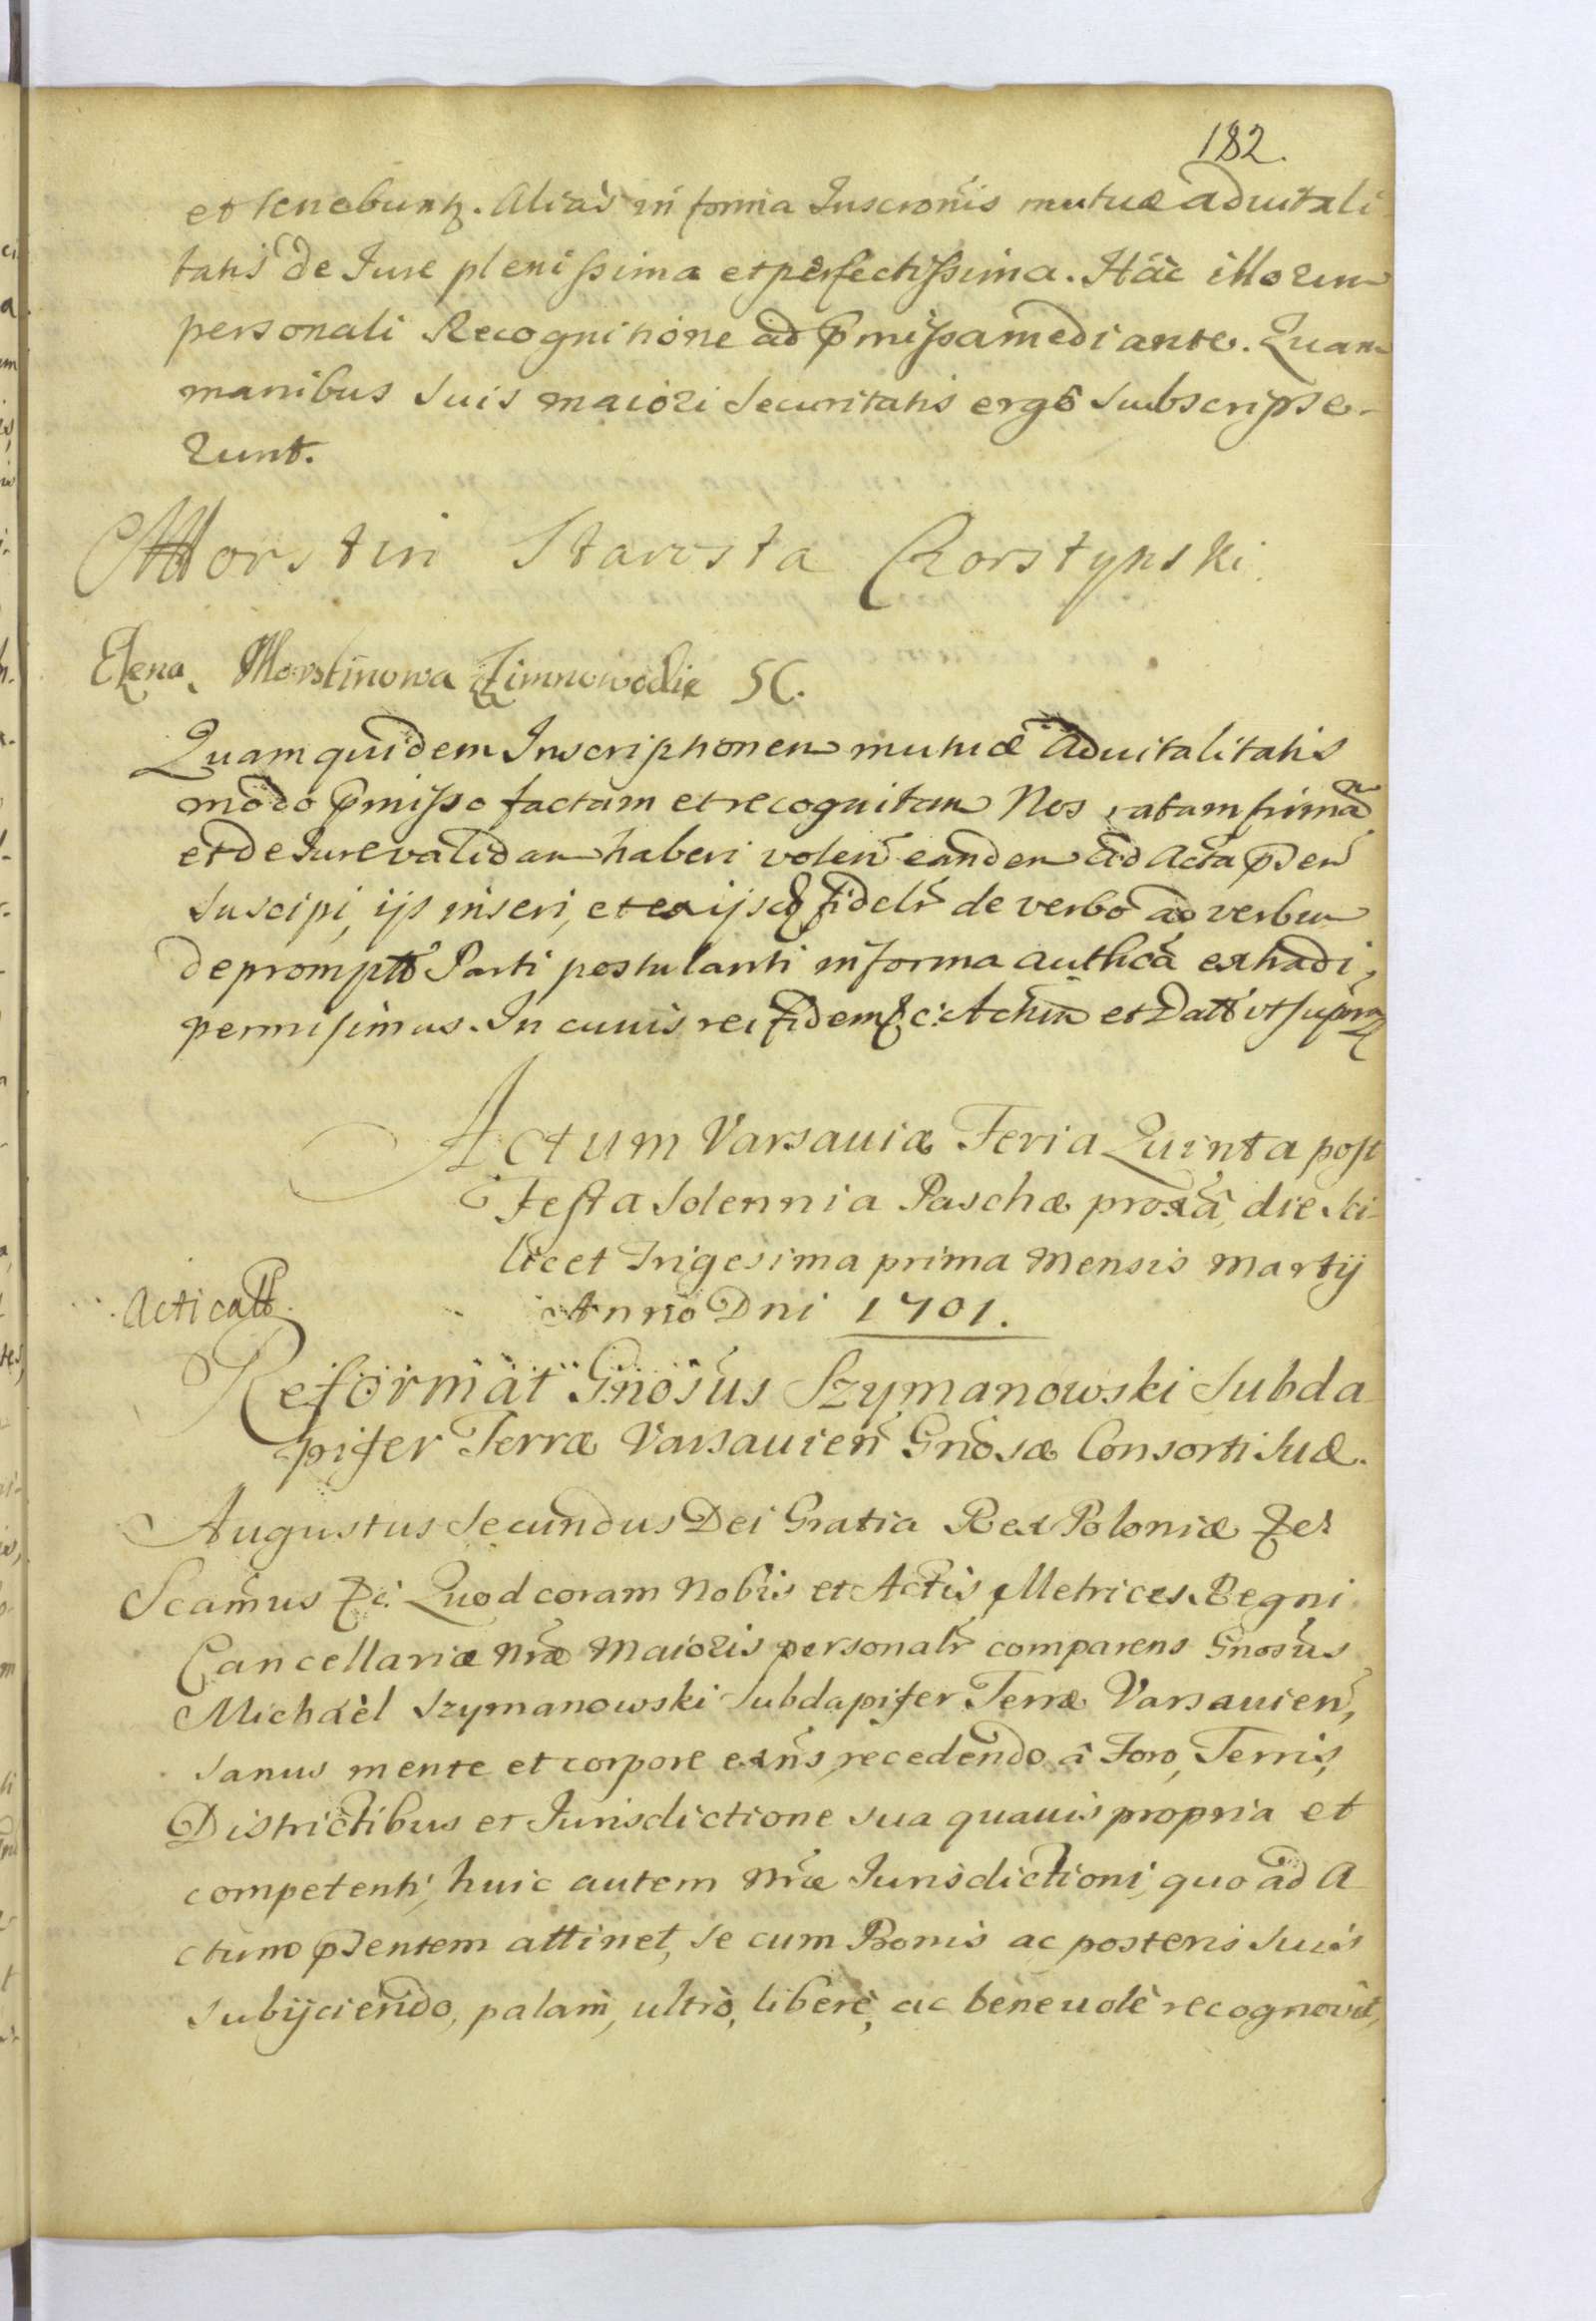 182.
et tenebuntz. Aliàs in forma Inscronis mutuæ aduitali
tatis de Iure plenissima et perfectissima. Hac illorum
personali Recognitione ad pmissa mediante. Quam
manibus suis maiori securitatis ergô subscripse-
runt.
Morstin Starosta Czorstynski.
Elena Morstinowa Zimnowodie SC.
Quam quidem Inscriptionem mutuæ aduitalitatis
modo pmisso factam et recognitam Nos ratam firmã
et de Iure validam haberi volen̄ eandem ad Acta pn̄
suscipi, ijs inseri, et ex ijsdē fidelr̄ de verbo ad verbum
depromptō Parti postulanti in forma auth̄cã extradi,
permisimus. In cuius rei fidem &c: Actum et Datt ut supra
Actum Varsauiæ Feria Quinta post
Festa Solennia Paschæ proxã, die sci-
licet Trigesima prima Mensis Martij
Acticatt.
Anno Dni 1701.
Reformat Gnosus Szymanowski Subda
pifer Terræ Varsauien̄ Gnosæ Consorti suæ.
Augustus Secundus Dei Gratia Rex Poloniæ &c
Scamus &c: Quod coram Nobis et Actis Metrices Regni
Cancellariæ Nræ Maioris personalr̄ comparens Gnosus
Michaèl Szymanowski Subdapifer Terræ Varsauien̄,
sanus mente et corpore exn̄s, recedendo à Foro, Terris,
Districtibus et Iurisdictione sua quauis propria et
competenti, huic autem Nræ Iurisdictioni, quo ad A
ctum pn̄tem attinet, se cum Bonis ac posteris suis
subijciendo, palam, ultrò, liberè, ac beneuolè recognovit,